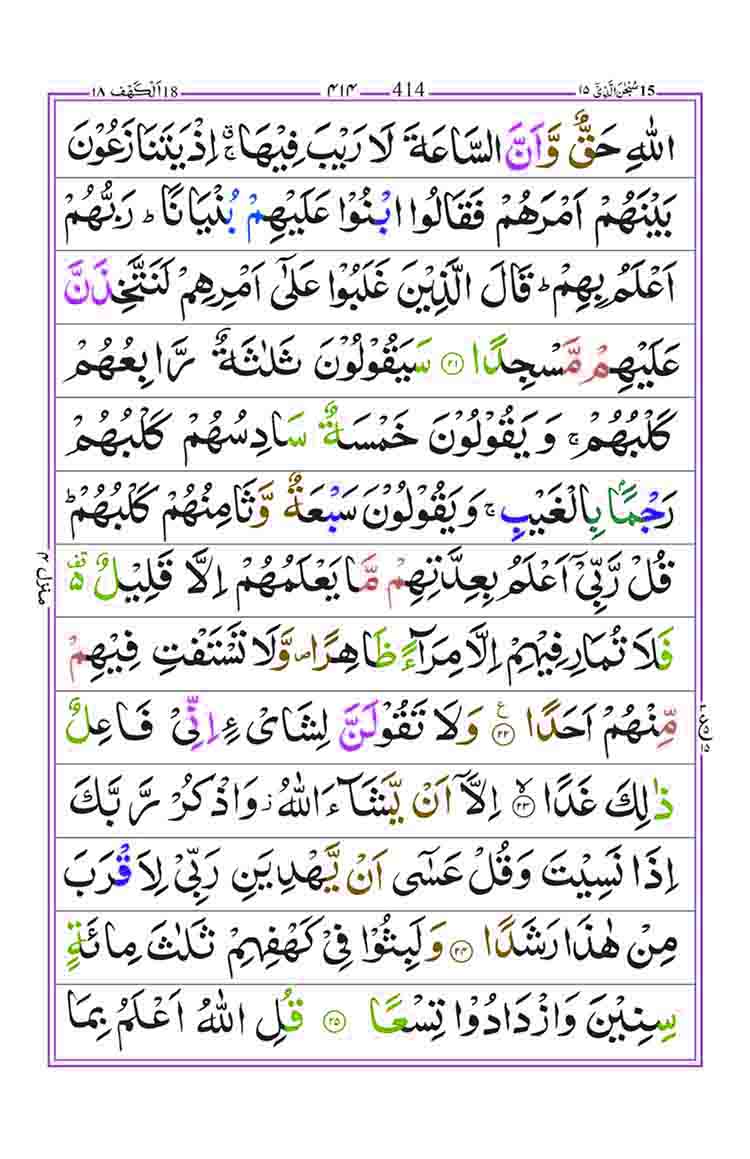 15 سُبْحٰنَ الَّذِیْۤ ۱۵ 414 ۴۱۴ 18 اَلْكَهْف ۱۸
اللّٰهِ حَقٌّ وَّاَنَّ السَّاعَةَ لَا رَیْبَ فِیْهَا ۚۗ اِذْ یَتَنَازَعُوْنَ
بَیْنَهُمْ اَمْرَهُمْ فَقَالُوا ابْنُوْا عَلَیْهِمْ بُنْیَانًا ؕ رَبُّهُمْ
اَعْلَمُ بِهِمْ ؕ قَالَ الَّذِیْنَ غَلَبُوْا عَلٰۤی اَمْرِهِمْ لَنَتَّخِذَنَّ
عَلَیْهِمْ مَّسْجِدًا ﴿۲۱﴾ سَیَقُوْلُوْنَ ثَلٰثَةٌ رَّابِعُهُمْ
كَلْبُهُمْ ۚ وَیَقُوْلُوْنَ خَمْسَةٌ سَادِسُهُمْ كَلْبُهُمْ
رَجْمًۢا بِالْغَیْبِ ۚ وَیَقُوْلُوْنَ سَبْعَةٌ وَّثَامِنُهُمْ كَلْبُهُمْ ؕ
قُلْ رَّبِّیْۤ اَعْلَمُ بِعِدَّتِهِمْ مَّا یَعْلَمُهُمْ اِلَّا قَلِیْلٌ ۵
فَلَا تُمَارِ فِیْهِمْ اِلَّا مِرَآءً ظَاهِرًا ۪ وَّلَا تَسْتَفْتِ فِیْهِمْ
مِّنْهُمْ اَحَدًا ﴿۲۲﴾ ع وَلَا تَقُوْلَنَّ لِشَایْءٍ اِنِّیْ فَاعِلٌ
ذٰلِكَ غَدًا ﴿۲۳﴾ ۙ اِلَّاۤ اَنْ یَّشَآءَ اللّٰهُ ؗ وَاذْكُرْ رَّبَّكَ
اِذَا نَسِیْتَ وَقُلْ عَسٰۤی اَنْ یَّهْدِیَنِ رَبِّیْ لِاَقْرَبَ
مِنْ هٰذَا رَشَدًا ﴿۲۴﴾ وَلَبِثُوْا فِیْ كَهْفِهِمْ ثَلٰثَ مِائَةٍ
سِنِیْنَ وَازْدَادُوْا تِسْعًا ﴿۲۵﴾ قُلِ اللّٰهُ اَعْلَمُ بِمَا
منزل ۴